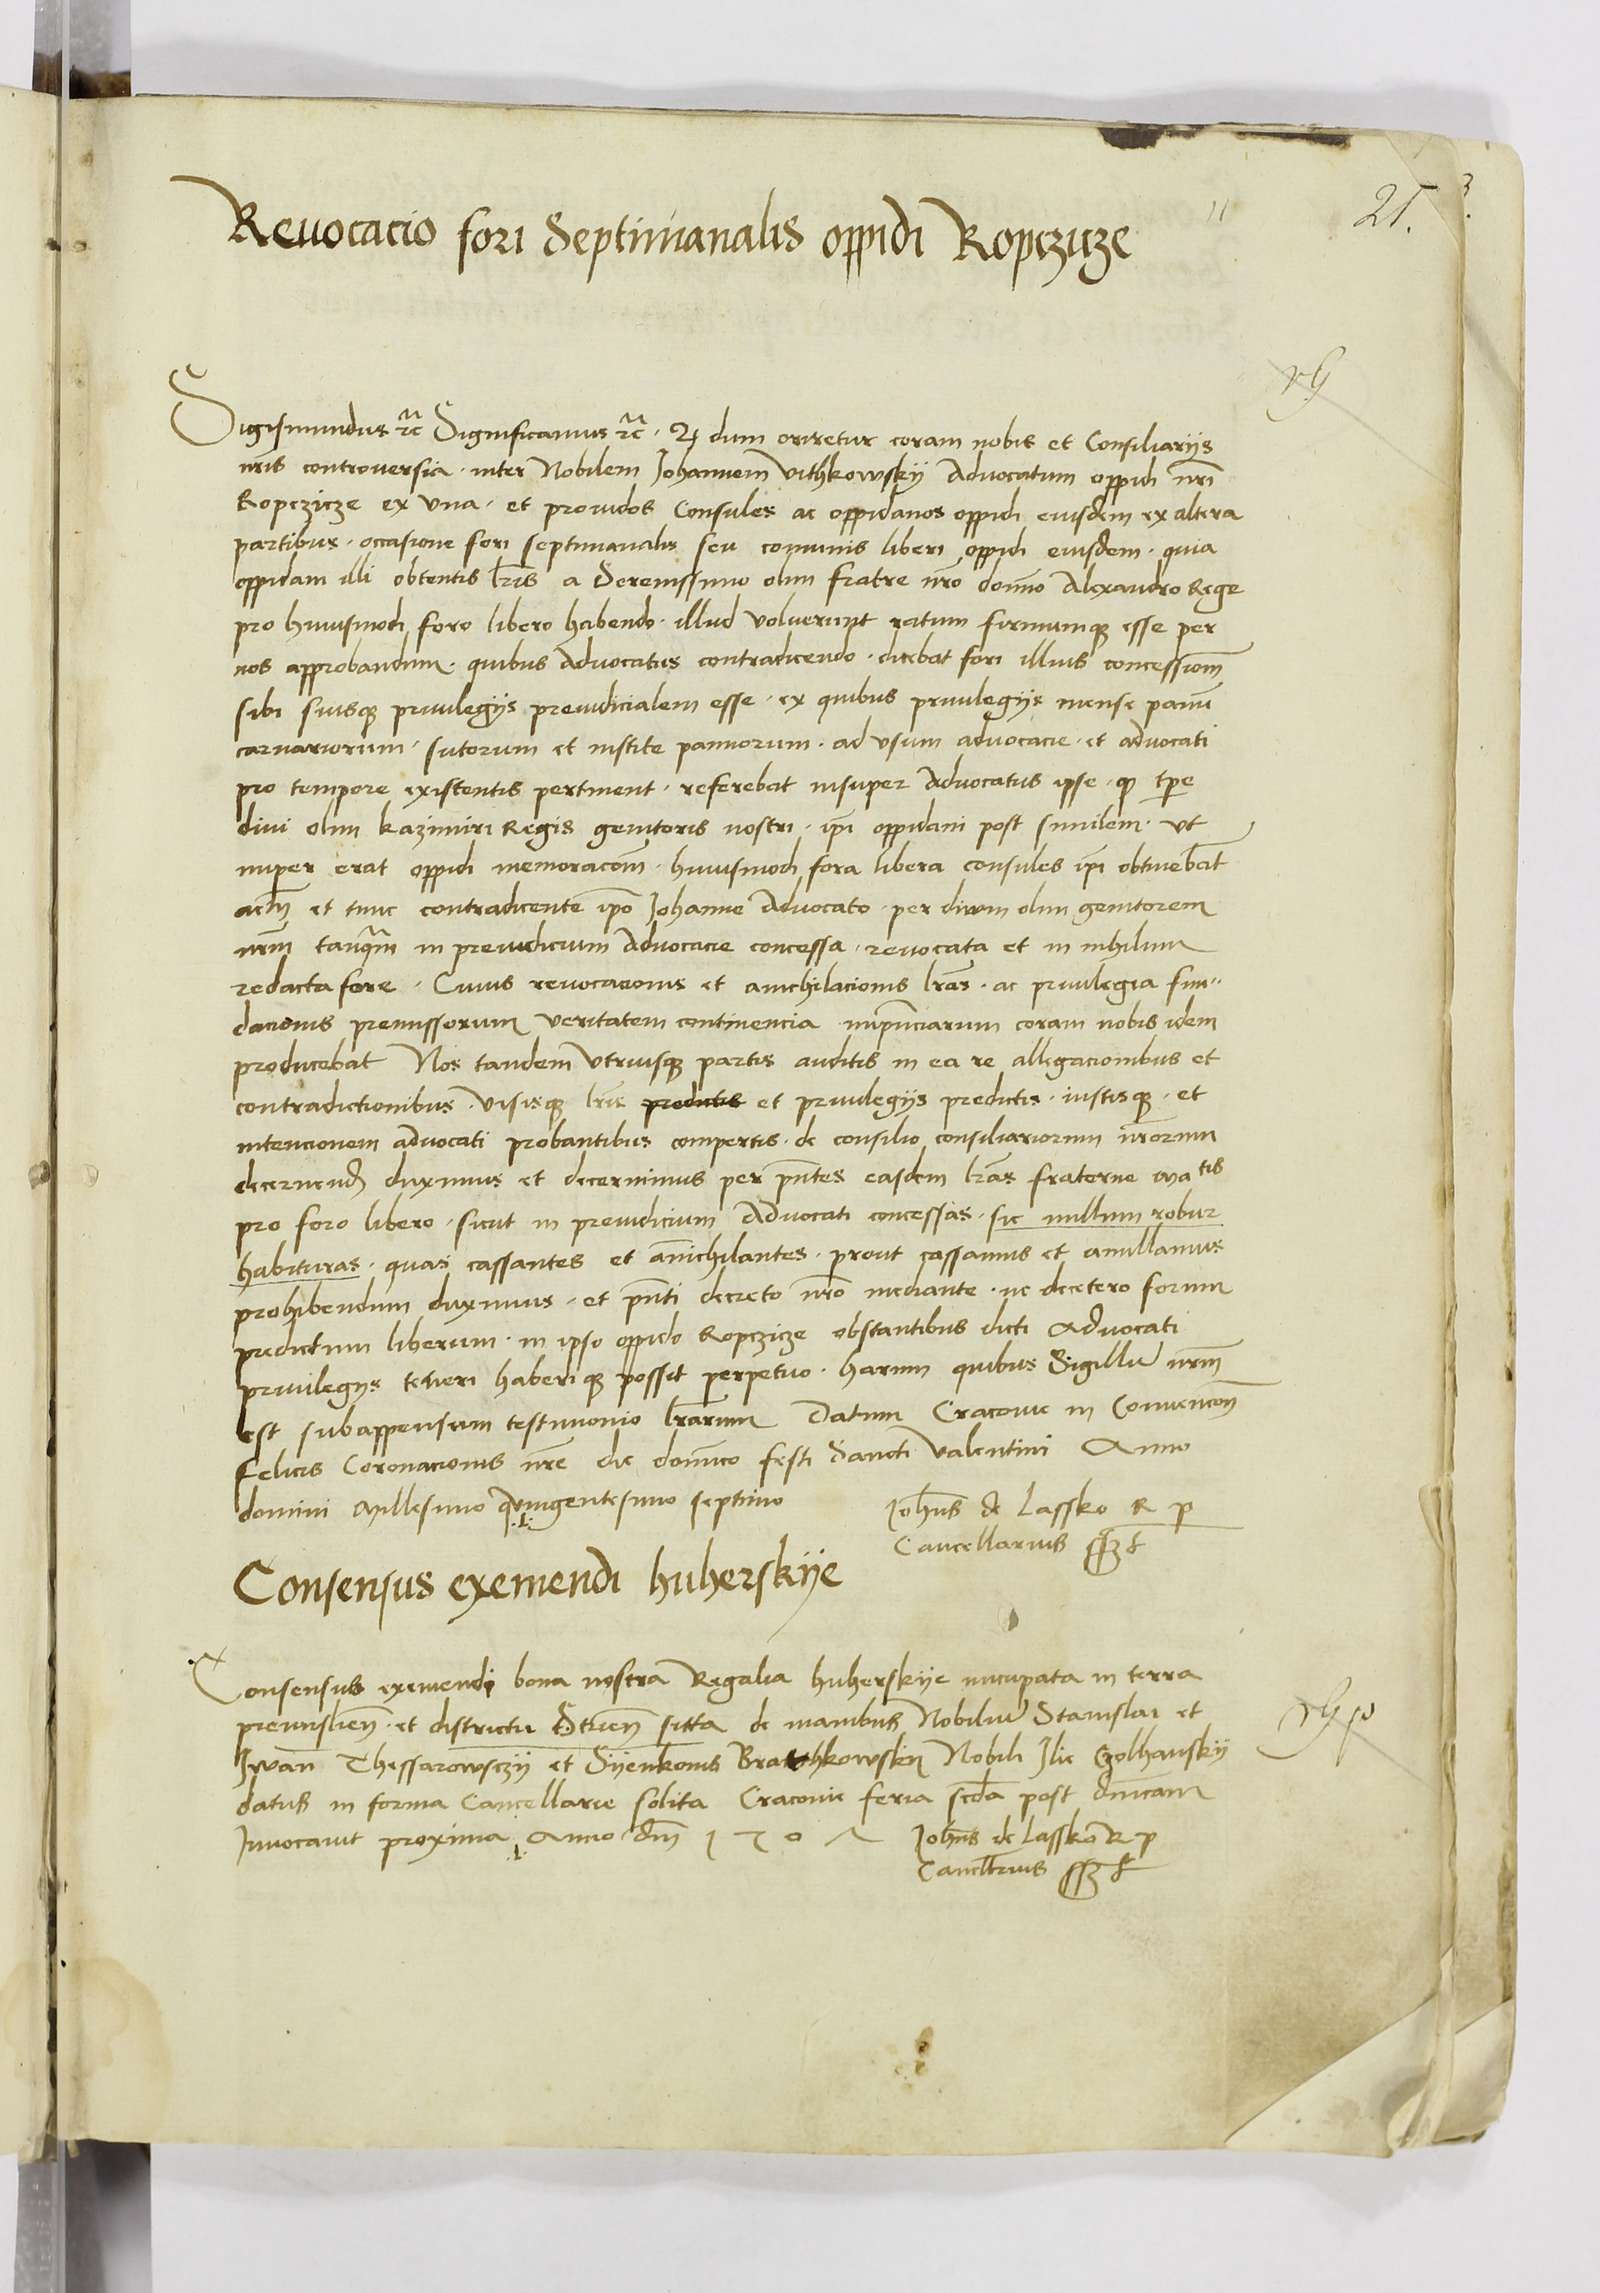 21.
Revocacio fori Septimanalis oppidi Ropczicze
Sigismundus etc Significamus etc. Q dum oriretur coram nobis et Consiliarijs
nris controversia. inter Nobilem Johannem Vithkowskij Advocatum oppidi nri
Ropczicze ex una. et providos Consules ac oppidanos oppidi eiusdem ex altera
partibus. occasione fori septimanalis seu comunis liberi oppidi eiusdem. quia
oppidani illi obtentis lris a Serenissimo olim fratre nro domino Alexandro Rege
pro huiusmodi foro libero habendo. illud voluerunt ratum firmumq esse per
nos approbandum. quibus Advocatus contradicendo. dicebat fori illius concessiom
sibi suisq privilegijs preiudicialem esse. ex quibus privilegijs mense panu
carnariorum. sutorum et institе pannorum. ad usum advocacie. et advocati
pro tempore existentis pertinent. referebat insuper Advocatus ipse. q tpe
divi olim Kazimiri Regis genitoris nostri. ipi oppidani post similem. ut
nuper erat oppidi memoracom. huiusmodi fora libera consules ipi obtinebat
et tunc contradicente ipo Johanne Advocato. per divum olim genitorem
nrm tanqm in preiudicium Advocacie concessa. revocata et in nihilum
redacta fore. Cuius revocacionis et anichilacionis lras. ac privilegia fun
dacionis premissorum veritatem continencia coram nobis idem
producebat Nos tandem utriusq partis auditis in ea re allegacionibus et
contradictionibus. visisq lris predictis et privilegijs predictis. iustisq. et
intencionem advocati probantibus compertis. de consilio consiliariorum nrorum
decernend duximus et decernimus per pntes easdem lras fraterne Ma tis
pro foro libero. sicut in preiudicium Advocati concessas. sic nullum robur
habituras. quas cassantes et anichilantes. prout cassamus et anullamus
prohibendum duximus. et pnti decreto nro mediante. ne decetero forum
predictum liberum. in ipso oppido Ropczicze obstantibus dicti Advocati
privilegijs teneri haberiq possit perpetuo. harum quibus Sigillu nrm
est subappensum testimonio lrarum Datum Cracovie in Convencom
felicis Coronacionis nre die domico festi Sancti Valentini Anno
domini Millesimo quingentesimo septimo
Johns de Lassko R p
Cancellarius sszt
Consensus exemendi huherskije
Consensus exemendi bona nostra Regalia huherskije nucupata in terra
premislien. et districtu sitta de manibus Nobiliu Stanislai et
Iwan Thessarowsczij et Sijenkonis Brathkowskij Nobili Ilie Golhanskij
datus in forma Cancellarie solita Cracovie feria scda post dnicam
Invocavit proxima Anno dni 1507
Johns de Lassko R p
Cancellrius sszt